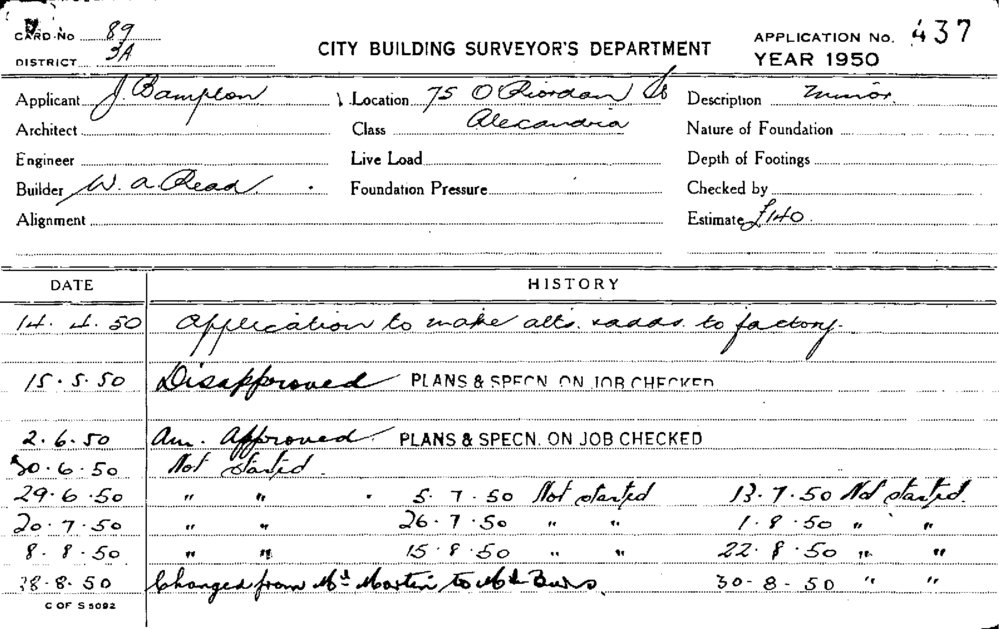 CARD No 89
DISTRICT 3A
CITY BUILDING SURVEYOR'S DEPARTMENT
APPLICATION No. 437
YEAR 1950
Applicant J. Bampton Location 75 O'Riordan St Description Minor.
Architect Class Alexandria Nature of Foundation
Engineer Live Load Depth of Footings
Builder W. A. Read Foundation Pressure Checked by
Alignment Estimate £140
DATE HISTORY
14. 4. 50 Application to make alts. & adds. to factory.
15. 5. 50 Disapproved PLANS & SPECN. ON JOB CHECKED
2. 6. 50 Am. Approved PLANS & SPECN. ON JOB CHECKED
6. 50 Not started.
29. 6. 50 " " 5. 7. 50 Not started 13. 7. 50 Not started.
20. 7. 50 " " 26. 7. 50 " " 1. 8. 50 " "
8. 8. 50 " " 15. 8. 50 " " 22. 8. 50 " "
8. 50 Changed from Martin to 30-8-50 " "
C OF S 5092